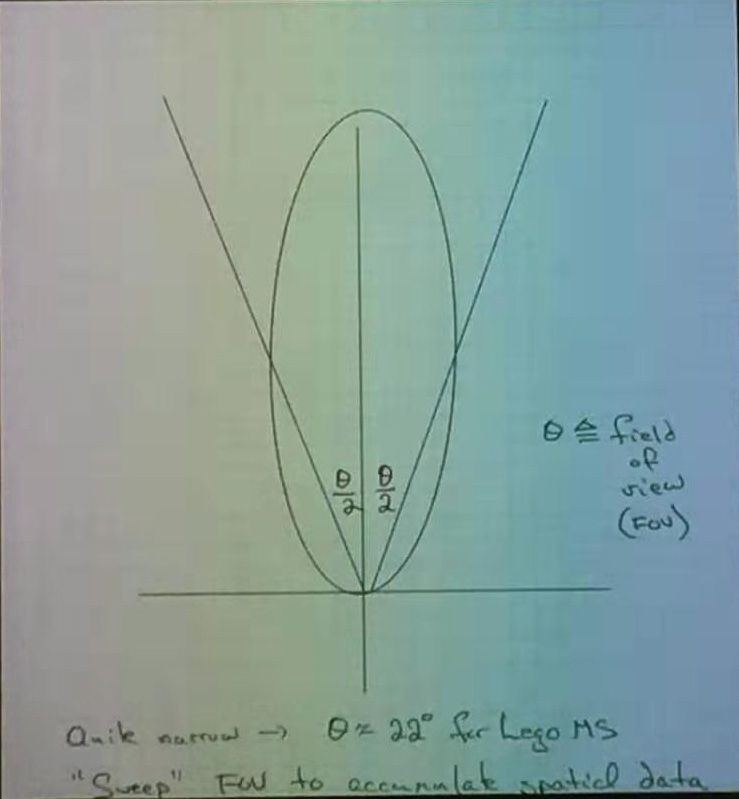 θ/2 θ/2
θ ≜ field
of
view
(FOV)
Quite narrow → θ ≈ 22° for Lego MS
"Sweep" FOV to accumulate spatial data